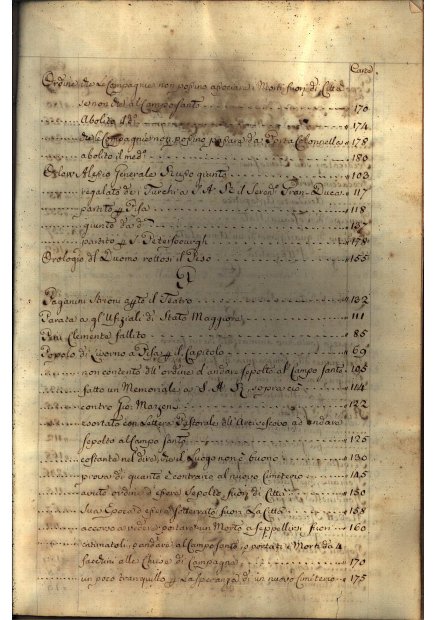 Carte
Ordine che le Compagnie non possino associare i Morti fuori di Città
se non che al Camposanto 170
Abolito d.º 174
che le Compagnie non possino passare da Porta Colonnella 178
abolito il med.º 180
Orlow Alessio Generale Russo giunto 103
regalato de i Turchi a S. A. R. il Seren.º Gran-Duca 117
partito p Pisa 118
giunto da d.º
partito p S. Petersbourgh 178
Orologio del Duomo rottosi il Peso 155
P
Paganini Stroni il Teatro 132
Parata a gl'Ufiziali di Stato Maggiore 111
Pini Clemente fallito 85
Popolo di Livorno a Pisa p il Capitolo 69
non contento dell'ordine d'andare sepolto al Campo Santo 105
fatto un Memoriale a S. A. R. sopra ciò 114
contro Gio. Mazzoni 122
esortato con Lettera Pastorale dell'Arcivescovo ad andare
sepolto al Campo Santo 125
costante nel dire, che il Luogo non è buono 130
prova di quanto è contrario al nuovo Cimiterio 145
avuto ordine d'essere Sepolto fuori di Città 150
sua Epoca d'essere sotterrato fuori la Città 158
accorso a vedere portare un Morto a seppellirsi fuori 160
catimatoli, p andare al Camposanto, o portati i Morti da 4
facchini alle Chiese di Campagna 170
un poco tranquillo p la speranza di un nuovo Cimiterio 175